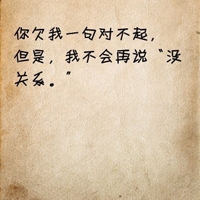 你欠我一句对不起，
但是，我不会再说“没
关系。”